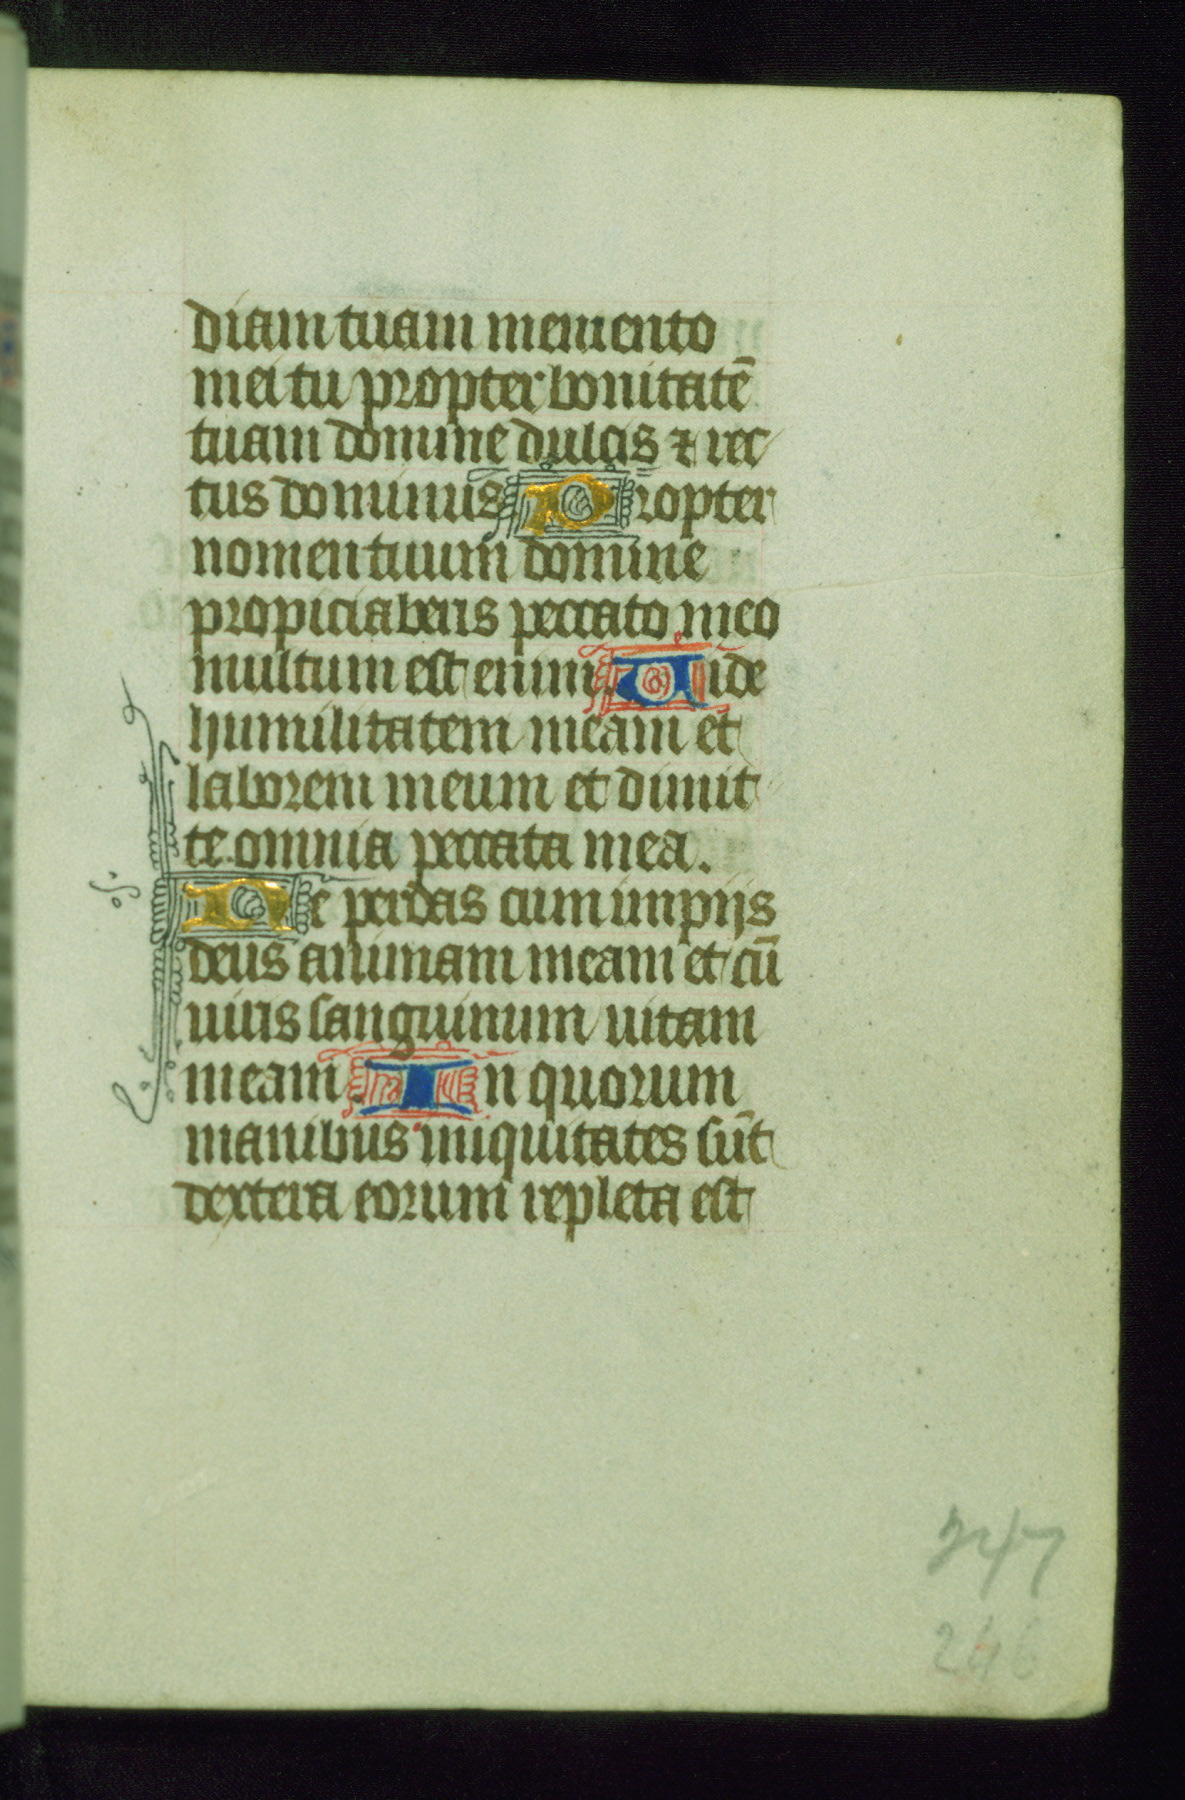 diam tuam memento
mei tu propter bonitatē
tuam domine dulcis ⁊ rec
tus dominus Propter
nomen tuum domine
propiciaberis peccato meo
multum est enim. Vide
humilitatem meam et
laborem meum et dimit
te omnia peccata mea.
Ne perdas cum impijs
deus animam meam et cū
uiris sanguinum uitam
meam. In quorum
manibus iniquitates sūt
dextera eorum repleta est
247
246